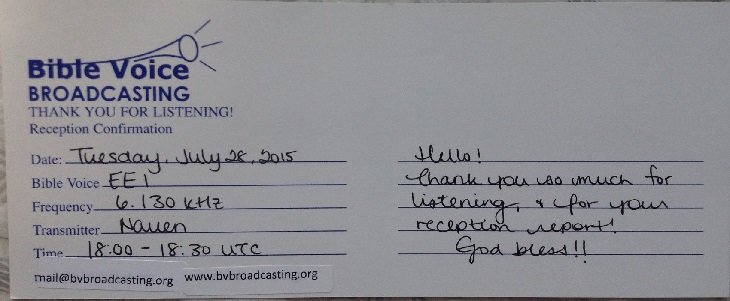 Bible Voice
BROADCASTING
THANK YOU FOR LISTENING!
Reception Confirmation
Date: Tuesday, July 28, 2015
Bible Voice EE1
Frequency 6.130 KHz
Transmitter Nauen
Time 18:00 - 18:30 UTC
mail@bvbroadcasting.org www.bvbroadcasting.org
Hello!
Thank you so much for
listening, & for your
reception report!
God bless!!